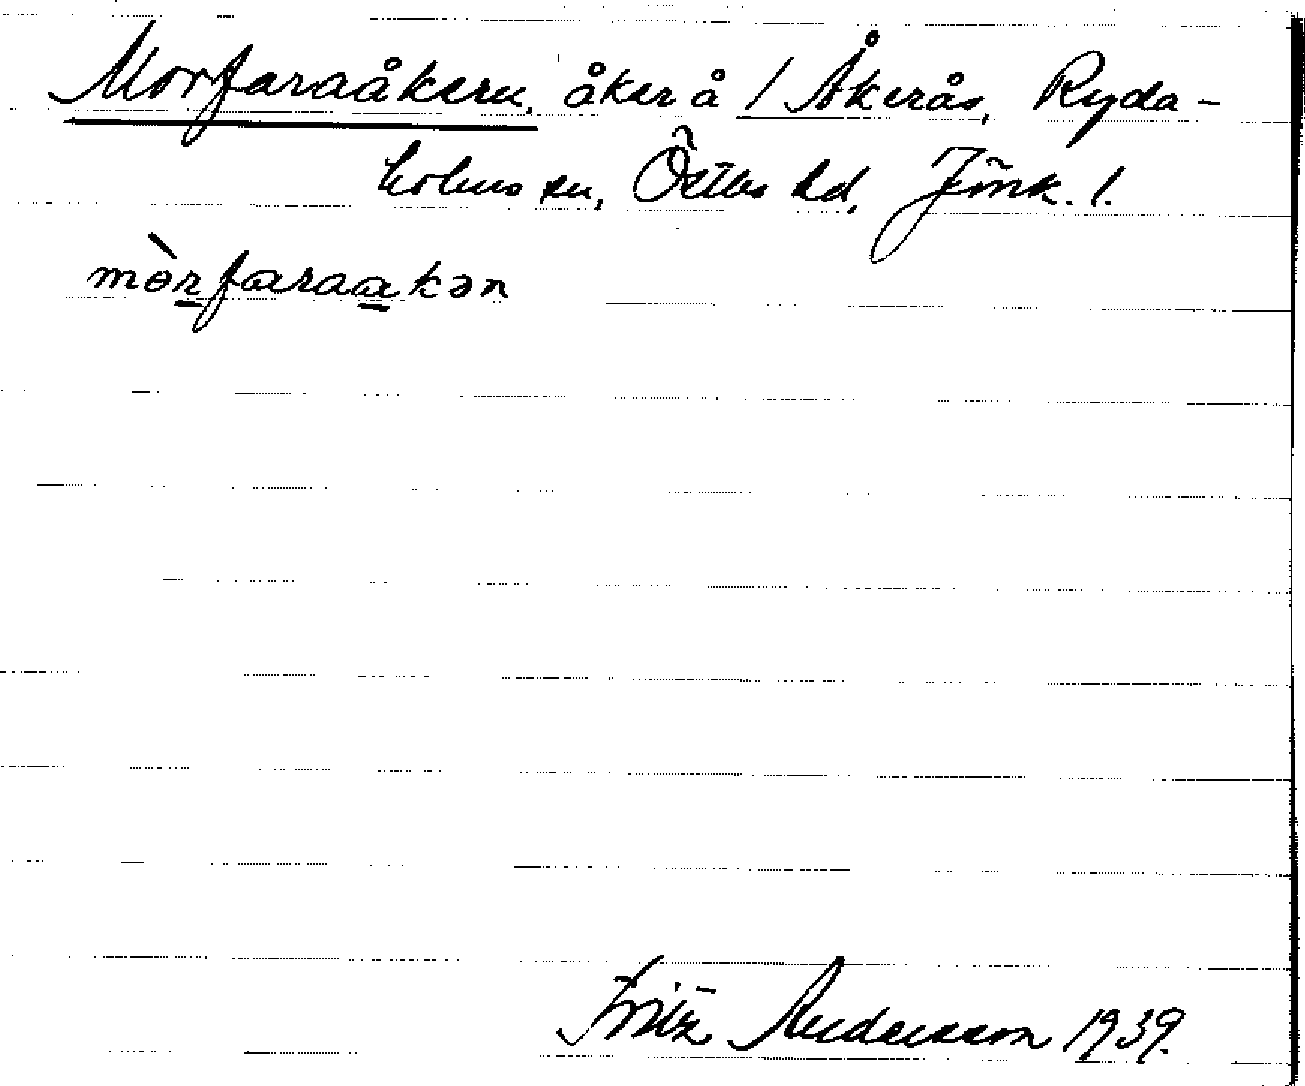 Morfaraåkern, åker å / Åkerås, Ryda-
holms sn, Östbo hd, Jönk. l.
mòrfaraakən
Fritz Andersson 1939.